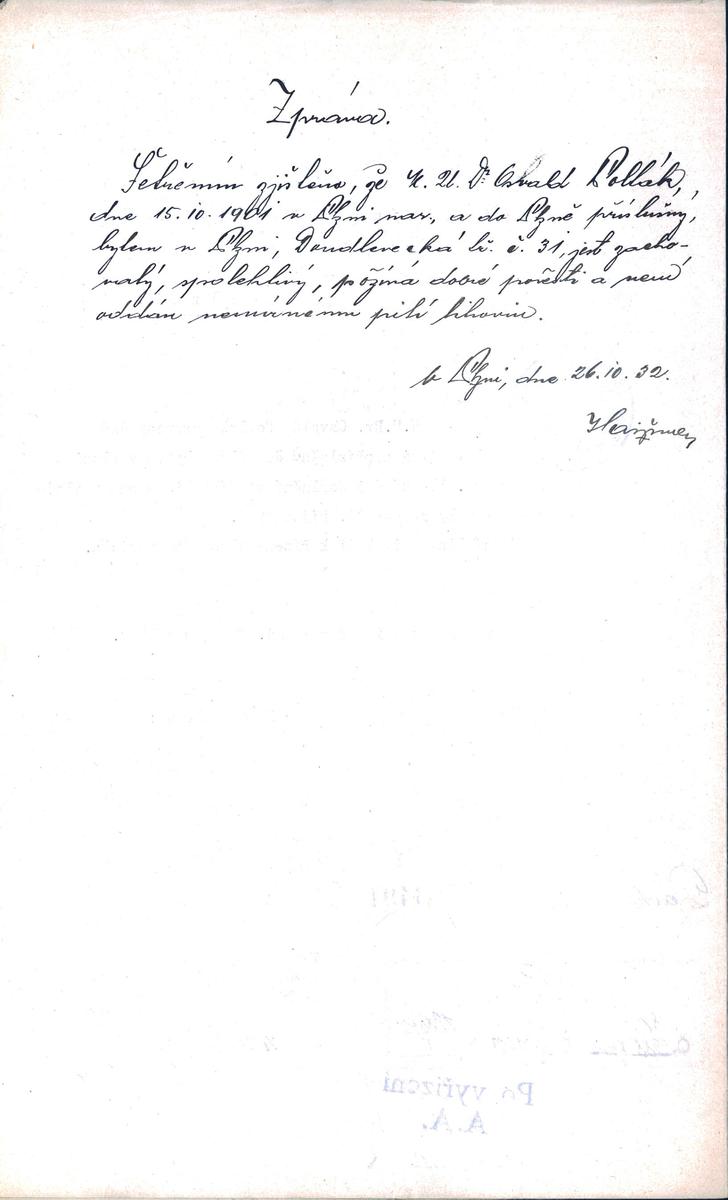 Zpráva.
Šetřením zjištěno, že Dr Osvald Pollák,
dne 15.10.1901 v Plzni nar., a do Plzně příslušný,
bytem v Plzni, Doudlevecká tř. č. 31, jest zacho-
valý, spolehlivý, požívá dobré pověsti a není
oddán nemírnému pití lihovin.
V Plzni, dne 26.10.32.
Po vyřízení
A.A.